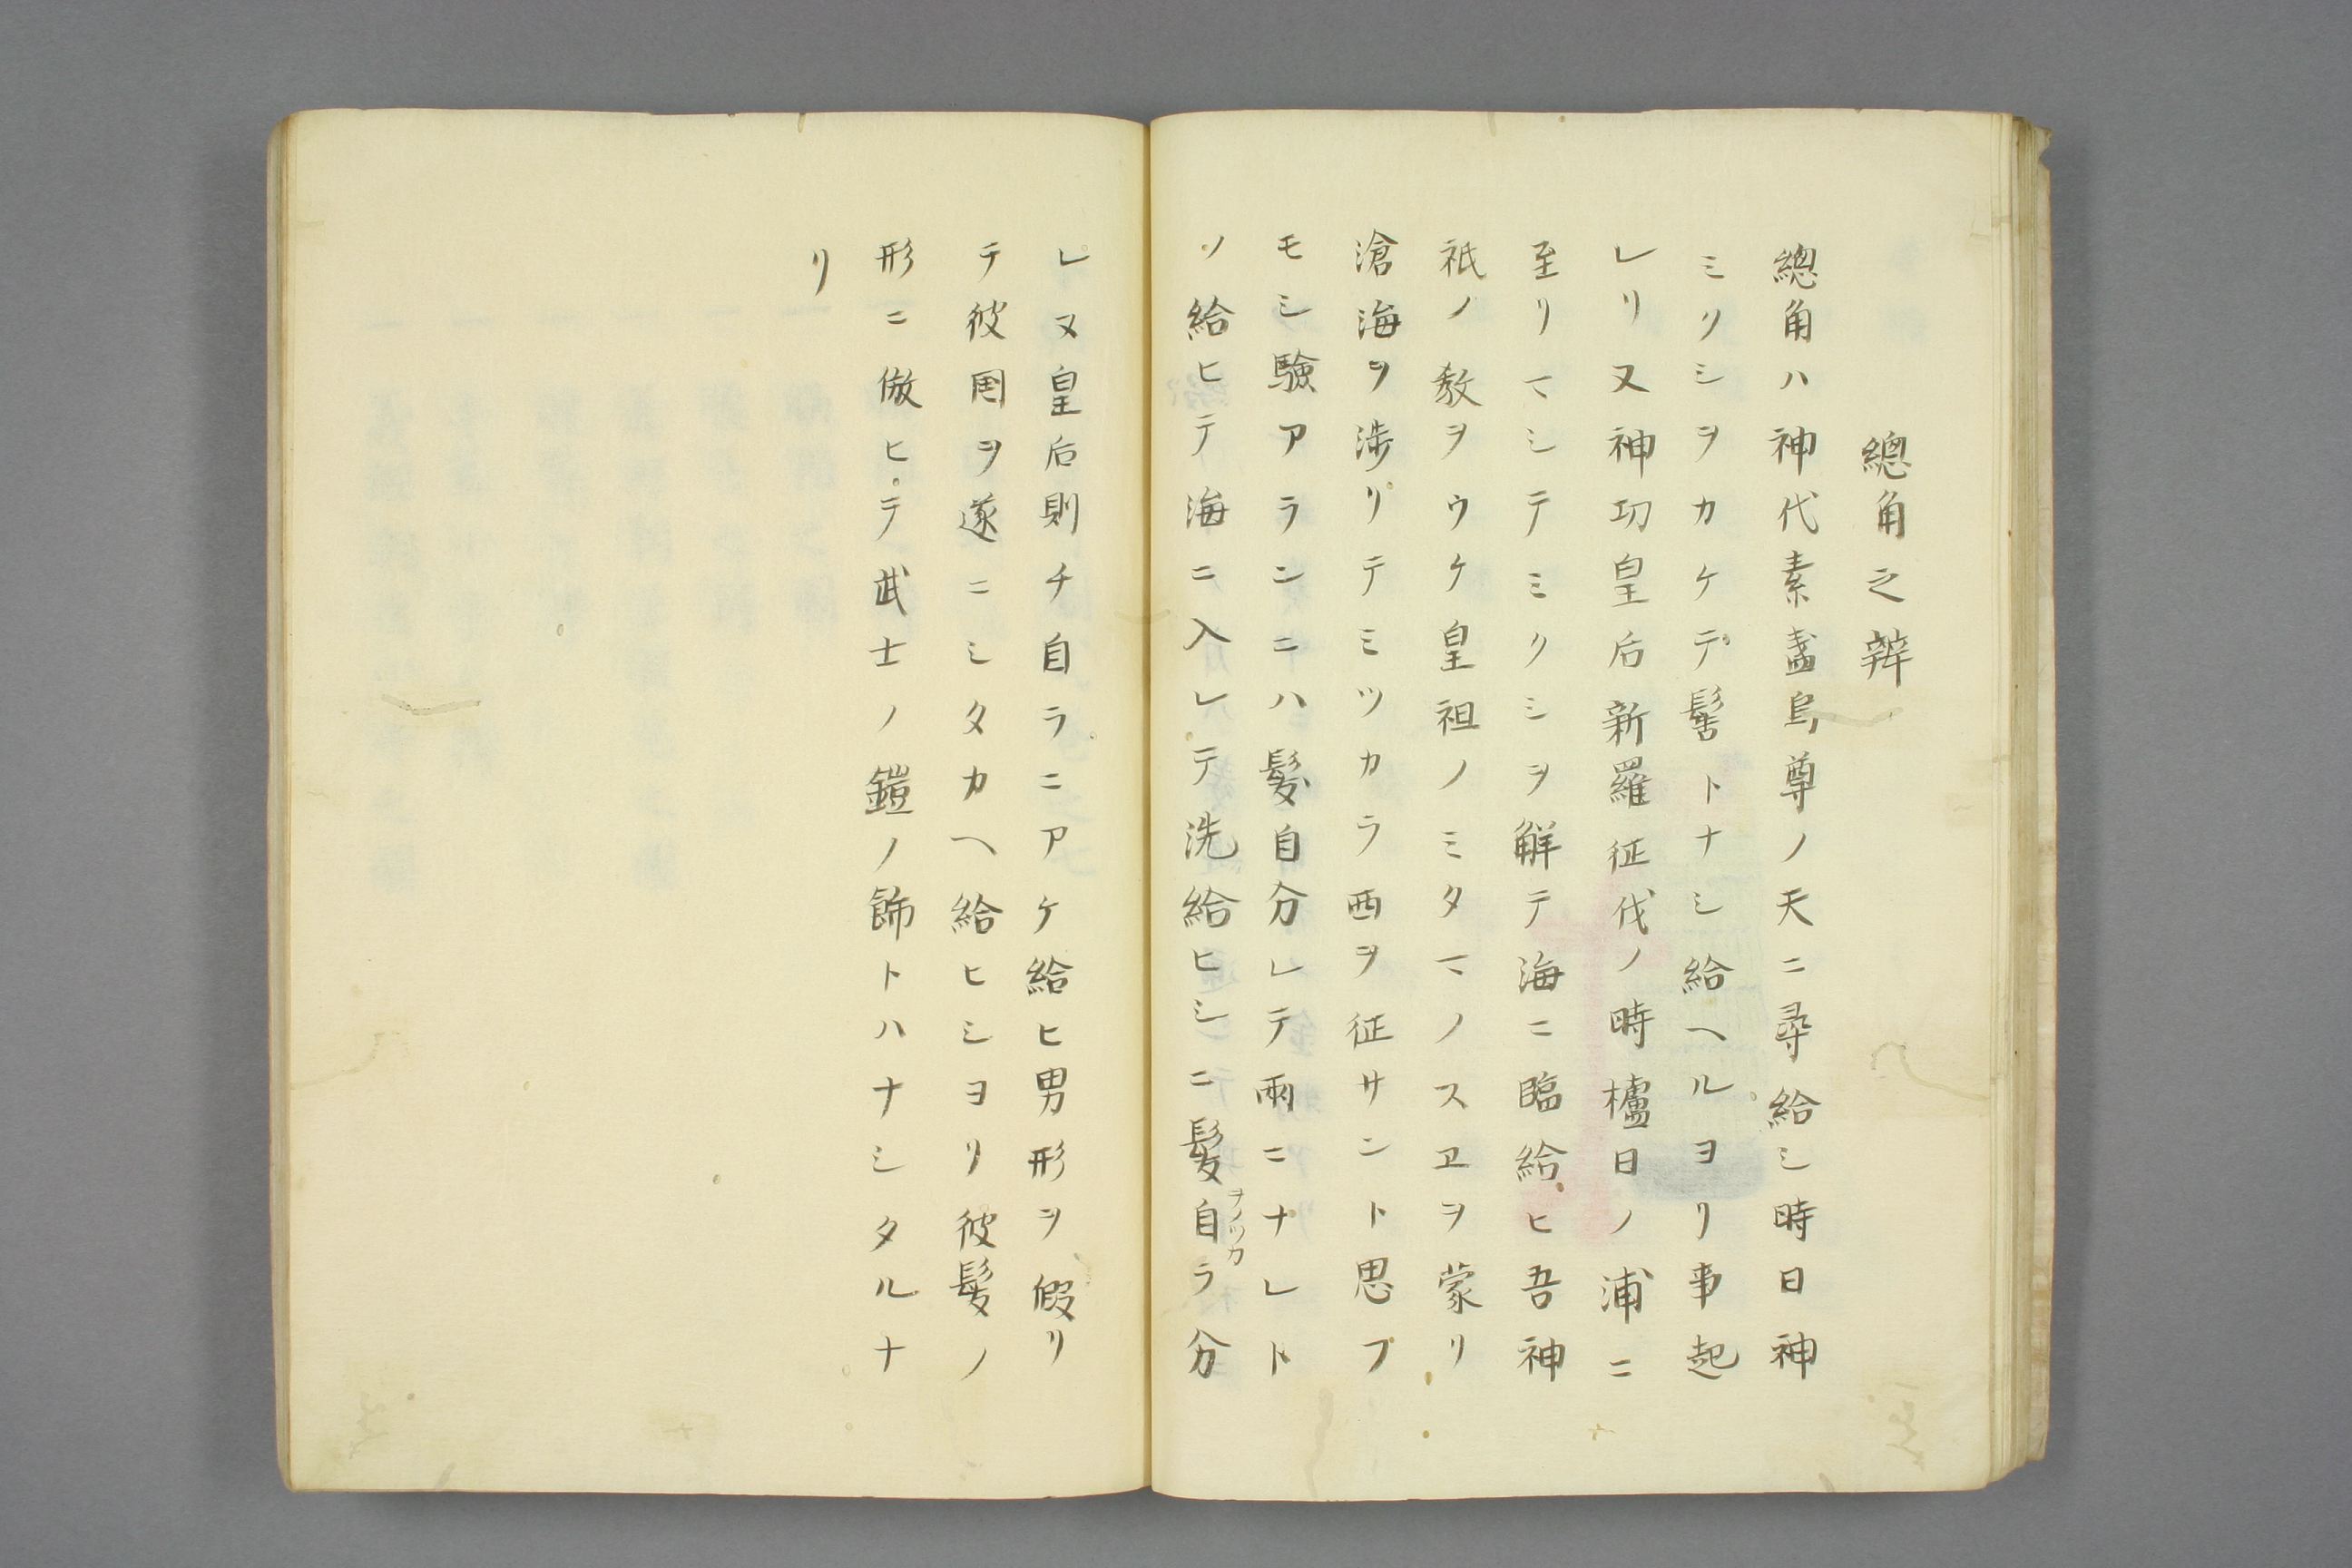 總角之辨
總角ハ神代素盞烏尊ノ天ニ尋給シ時日神
ミクシヲカケデ髻トナシ給ヘルヨリ事起
レリ又神功皇后新羅征伐ノ時橿日ノ浦ニ
至リマシテミクシヲ觧テ海ニ臨給ヒ吾神
祇ノ教ヲウケ皇祖ノミタマノスヱヲ蒙リ
滄海ヲ渉リテミツカラ西ヲ征サント思フ
モシ驗アランニハ髮自分レテ兩ニナレト
ノ給ヒテ海ニ入レテ洗給ヒシニ髮自ラ分
ヲノツカ
レヌ皇后則チ自ラニアケ給ヒ男形ヲ假リ
テ彼国ヲ遂ニシタカヘ給ヒシヨリ彼髮ノ
形ニ倣ヒテ武士ノ鎧ノ飾トハナシタルナ
リ